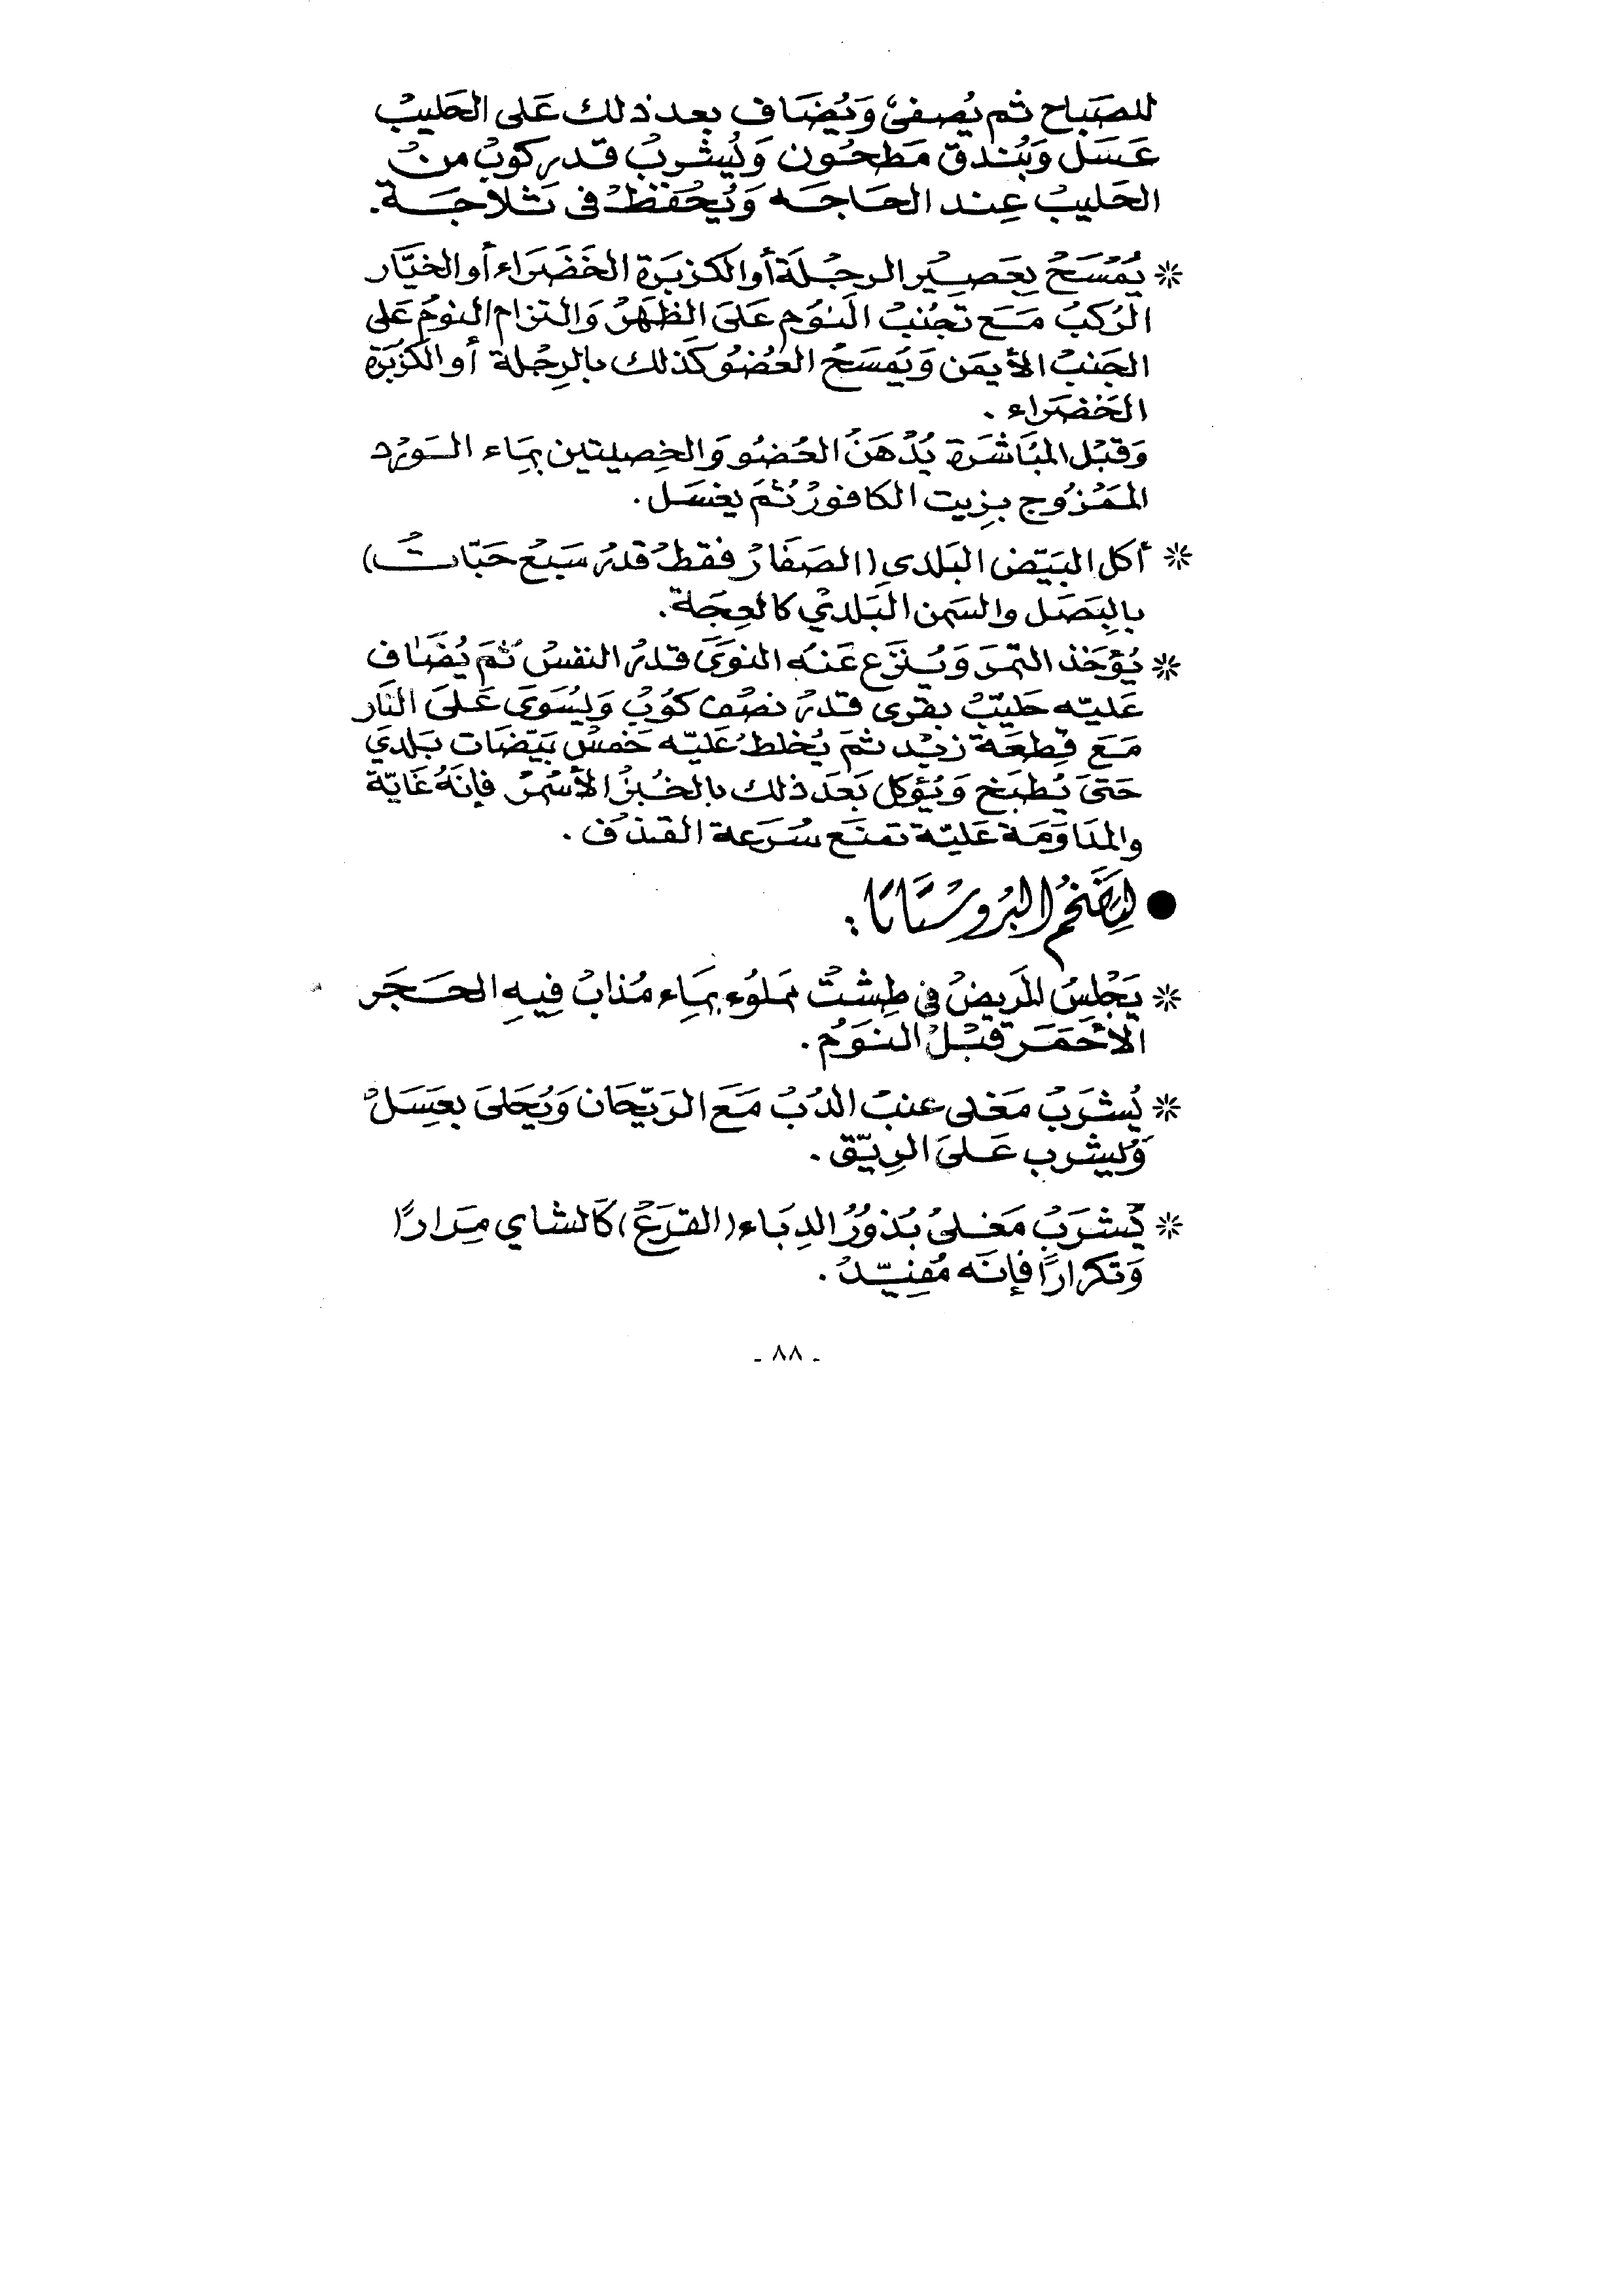 للصَبَاح ثم يُصفىْ وَيُضَاف بعد ذلك عَلى الحَليبْ
عَسَل وَبُندق مَطحُون وَيُشربْ قدر كوبْ منْ
الحَليبْ عِند الحَاجَه وَيُحْفَظْ فى ثلاجَة.
* يُمْسَحْ بِعَصِيْر الرجْلَة أو الكزبَرة الخَضَرَاء أو الخيَّار
الرُكبْ مَع تجُنبْ النوُم عَلىَ الظهَرْ وَالتزام النومْ عَلى
الجَنبْ الأيمَن وَيُمسَحْ العُضوُ كَذلك بالرِجْلة أو الكُزبَرة
الخَضرَاء .
وَقبْل المبُاشَرة يُدْهَنْ العُضوُ وَالخِصيتين بمَاء الـوَرْد
الممَزْوج بزِيت الكافورْ ثمَ يغسَل.
* أكل البَيّض البَلدى (الصَفَارْ فقطْ قدرْ سَبعْ حَبّات)
بالبَصَل والسَمن البَلديْ كالعِجَة.
* يُؤخَذ التمرَ وَيُنزَع عَنهُ النوَىَ قدرْ النفسْ ثمَ يُضَاف
عَليّه حَليّبْ بقرى قدرْ نصْف كوُبْ وَيُسَوىَ عَلىَ النَار
مَعَ قِطعَة زبْد ثمَ يُخلطْ عَليّه خَمسْ بَيّضَات بَلديَ
حَتىَ يُطبَخ وَيُؤكل بَعَد ذلك بالخُبزْ الأسْمَرْ فإنَهُ غَايّة
والمدَاوَمَة عَليّة تمنَع سُرَعة القذفْ .
● لِتضَخمُ البرُوسْتَاتَا :
* يَجْلِسُ المَريضْ فى طِشتْ مملوُء بمَاء مُذابْ فِيهِ الحَـجَر
الأحَمَر قبْلْ النوَمْ .
* يُشرَبْ مَغلى عنبْ الدُبْ مَعَ الرَيّحَان وَيُحَلىَ بعَسَلْ
وَيُشرب عَلىَ الرِيّق .
* يُشرَبْ مَغلىْ بُذوُرْ الدِبَاء (القرَعْ) كَالشاي مِرَارًا
وَتكرارًا فإنَه مُفيّدْ .
- ٨٨ -